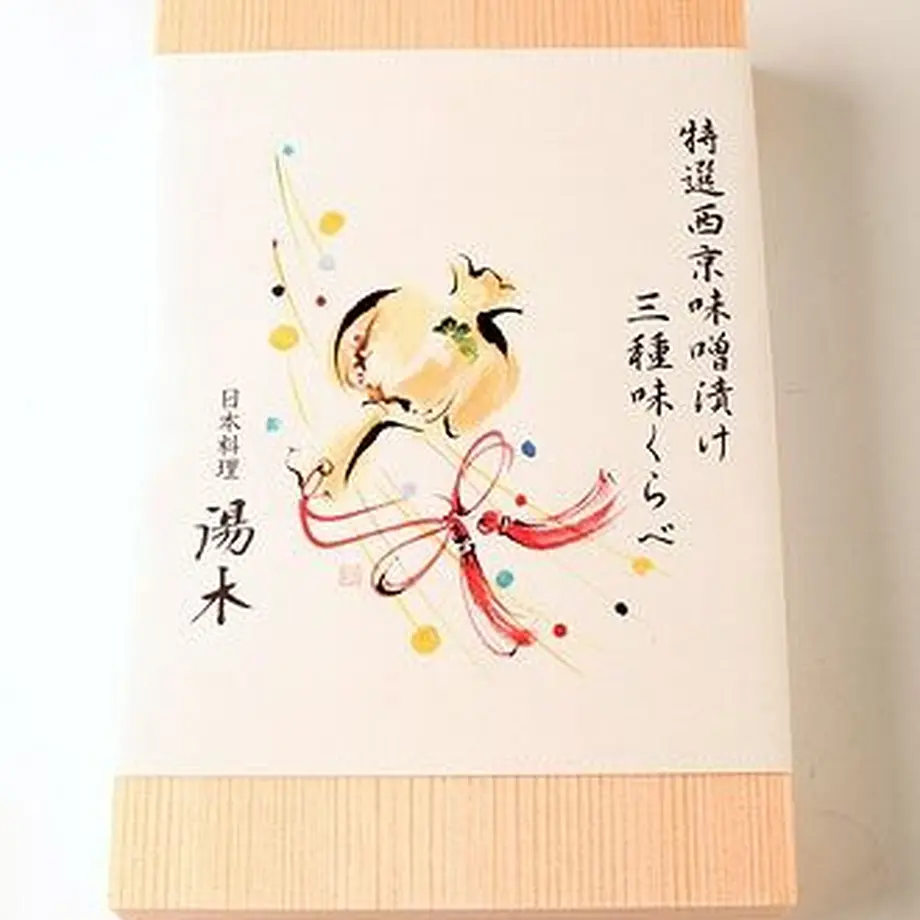 特選西京味噌漬け
三種味くらべ
日本料理 湯木